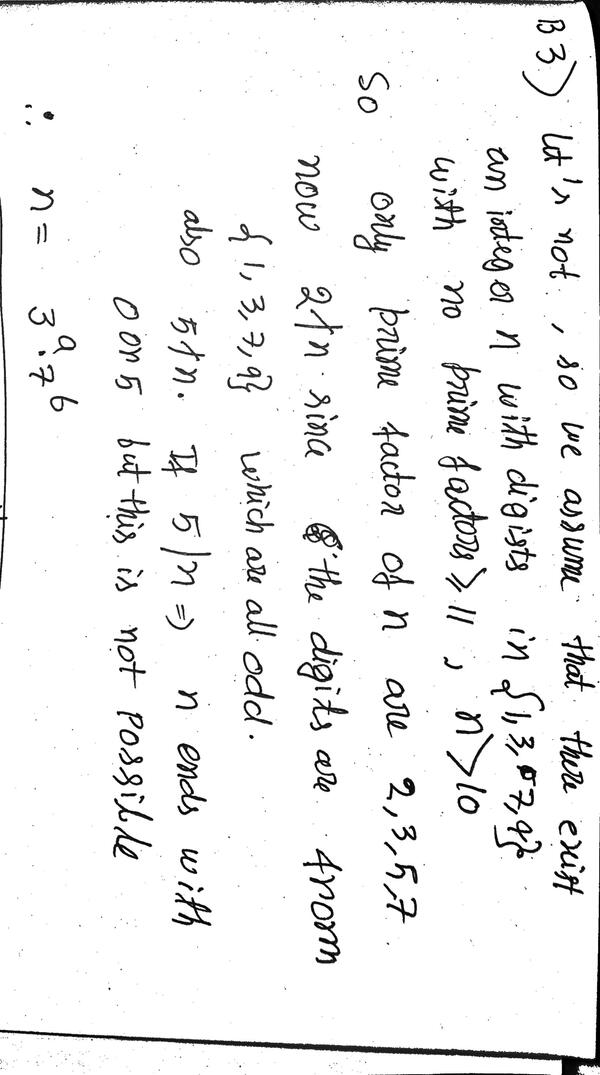 B3) Let's not, so we assume that there exist
an integer n with digists in {1,3,7,9}
with no prime factors ≥ 11, n > 10
So only prime factor of n are 2,3,5,7
now 2∤n since the digits are from
{1,3,7,9} which are all odd.
also 5∤n. If 5|n => n ends with
0 or 5 but this is not possible
∴ n = 3^a · 7^b